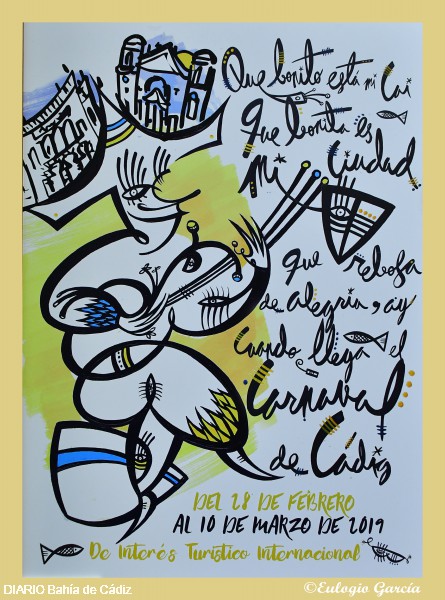 Que bonito está mi Cai
Que bonita es
Mi Ciudad
que rebosa
de alegría, ay
Cuando llega el
Carnaval
de Cádiz
DEL 28 DE FEBRERO
AL 10 DE MARZO DE 2019
De Interés Turístico Internacional
DIARIO Bahía de Cádiz
©Eulogio García